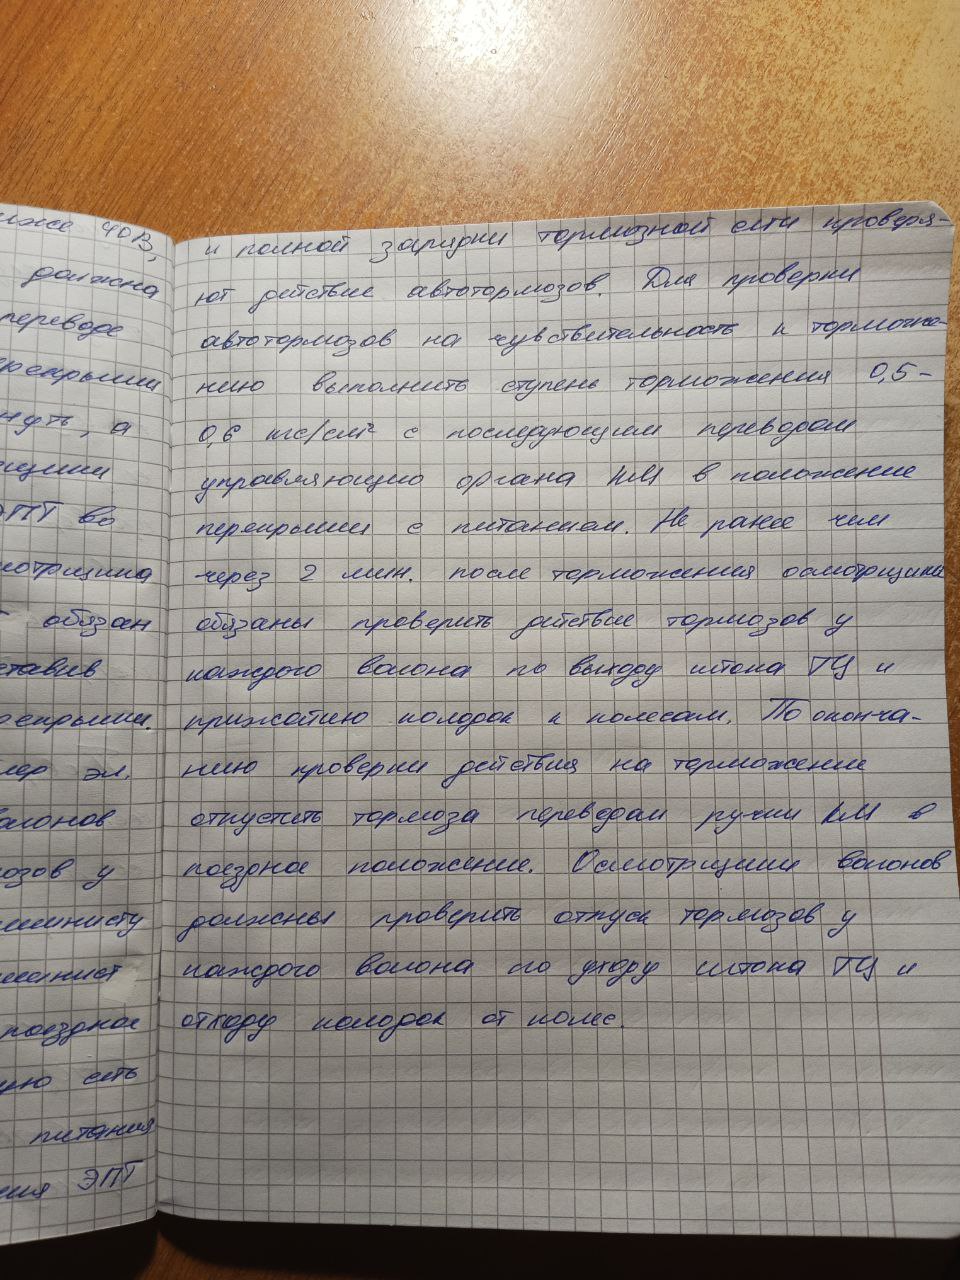 ниже 40В,
должна
переводе
перекрыши
нуть, а
щики
ЭПТ во
осмотрщика
обязан
ставив
перекрыши.
эл.
вагонов
тормозов у
машинисту
машинист
поездное
ную сеть
питания
ния ЭПТ
и полной зарядки тормозной сети проверя-
ют действие автотормозов. Для проверки
автотормозов на чувствительность к торможе-
нию выполнить ступень торможения 0,5-
0,6 кгс/см² с последующим переводом
управляющего органа КМ в положение
перекрыши с питанием. Не ранее чем
через 2 мин. после торможения осмотрщики
обязаны проверить действие тормозов у
каждого вагона по выходу штока ТЦ и
прижатию колодок к колесам. По оконча-
нию проверки действия на торможение
отпустить тормоза переводом ручки КМ в
поездное положение. Осмотрщики вагонов
должны проверить отпуск тормозов у
каждого вагона по уходу штока ТЦ и
отходу колодок от колес.